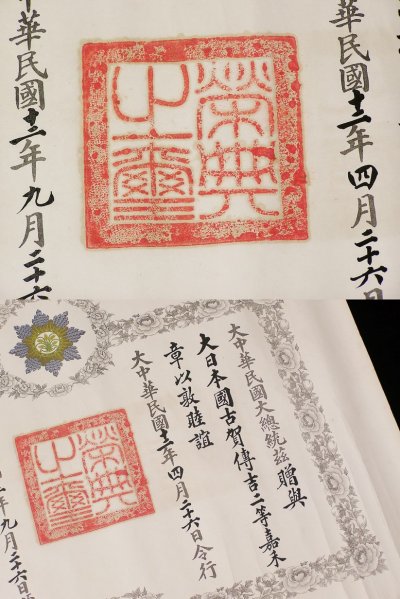 華民國十二年四月二十六日
榮典
之璽
中華民國十二年九月二十六
大中華民國大總統茲贈與
大日本國古賀傳吉二等嘉禾
章以敦睦誼
大中華民國十二年四月二十六日令行
榮典
之璽
年九月二十六日